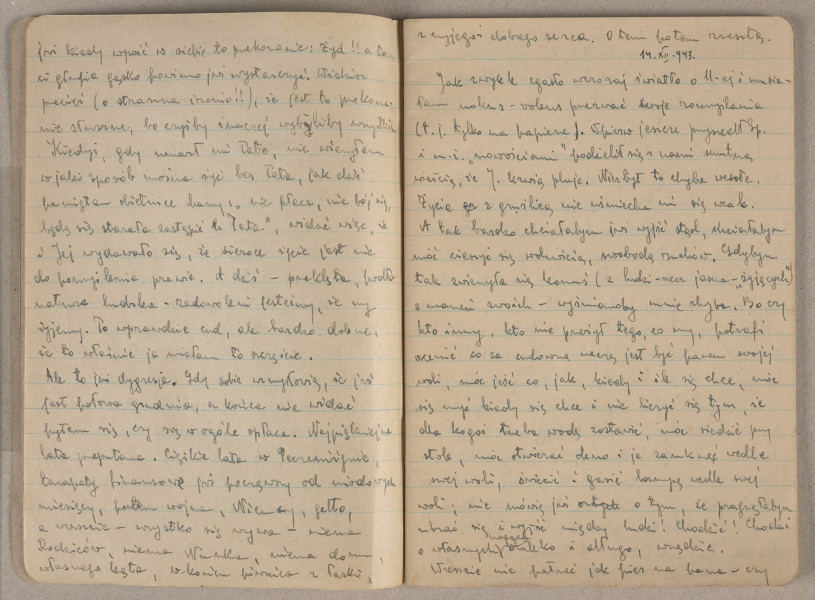 jeśli kiedy wpoić w siebie to przekonanie: żyd!! a to
ci głupia gąsko powinno już wystarczyć. Widzisz
przecież (o straszna ironio!!), że jest to przekona-
nie słuszne, bo czyżby inaczej wybijaliby wszystkich
Kiedyś, gdy umarł mi Tato, nie wiedziałam
w jaki sposób można żyć bez Taty, jak dziś
pamiętam obietnicę Mamy: "nie płacz, nie bój się,
będę się starała zastąpić Ci Tatę", widać więc, że
i Jej wydawało się, że sieroce życie jest nie
do pomyślenia prawie. A dziś – przeklęta, podła
natura ludzka – zadowoleni jesteśmy, że my
żyjemy. To wprawdzie cud, ale bardzo dobrze,
że to właśnie ja miałam to szczęście.
Ale to już dygresja. Gdy sobie uzmysłowię, że już
jest połowa grudnia, a końca nie widać
pytam się, czy się w ogóle opłaca. Najpiękniejsze
lata przepadają. Ciężkie lata w
tarapaty finansowe już począwszy od miodowych
miesięcy, potem wojna, Niemcy, getto,
a wreszcie – wszystko się urywa – niema
Rodziców, niema niema domu,
własnego kąta, w końcu piwnica z łaski,
z czyjegoś dobrego serca. O tem potem resztę.
14.XII.943.
Jak zwykle zgasło wczoraj światło o 11-ej i musia-
łam nolens-volens przerwać swoje rozmyślania
(t.j. tylko na papierze). Wpierw jeszcze przyszedł Sp.
i m.i. "nowościami" podzielił się z nami smutną
wieścią, że J. krwią pluje. Niezbyt to chyba wesołe.
Życie z gruźlicą nie uśmiecha mi się wcale.
A tak bardzo chciałabym już wyjść stąd, chciałabym
móc cieszyć się wolnością, swobodą ruchów. Gdybym
tak zwierzyła się komuś (z ludzi-rzecz jasna-"żyjących")
z marzeń swoich – wyśmianoby mnie chyba. Bo czy
kto inny, kto nie przeżył tego, co my, potrafi
ocenić co za cudowna rzecz jest być panem swojej
woli, móc jeść co, jak, kiedy i ile się chce, móc
się myć kiedy się chce i nie liczyć się tym, że
dla kogoś trzeba wodę zostawić, móc siedzieć przy
stole, móc otwierać okno i je zamknąć wedle
swej woli, świecić i gasić lampę wedle swej
woli; nie mówię już o tym, że pragnęłabym
ubrać się i wyjść między ludzi! Chodzić! Chodzić
o własnych nogach daleko i długo, wszędzie.
Wreszcie nie patrzeć jak pies na pana – czy